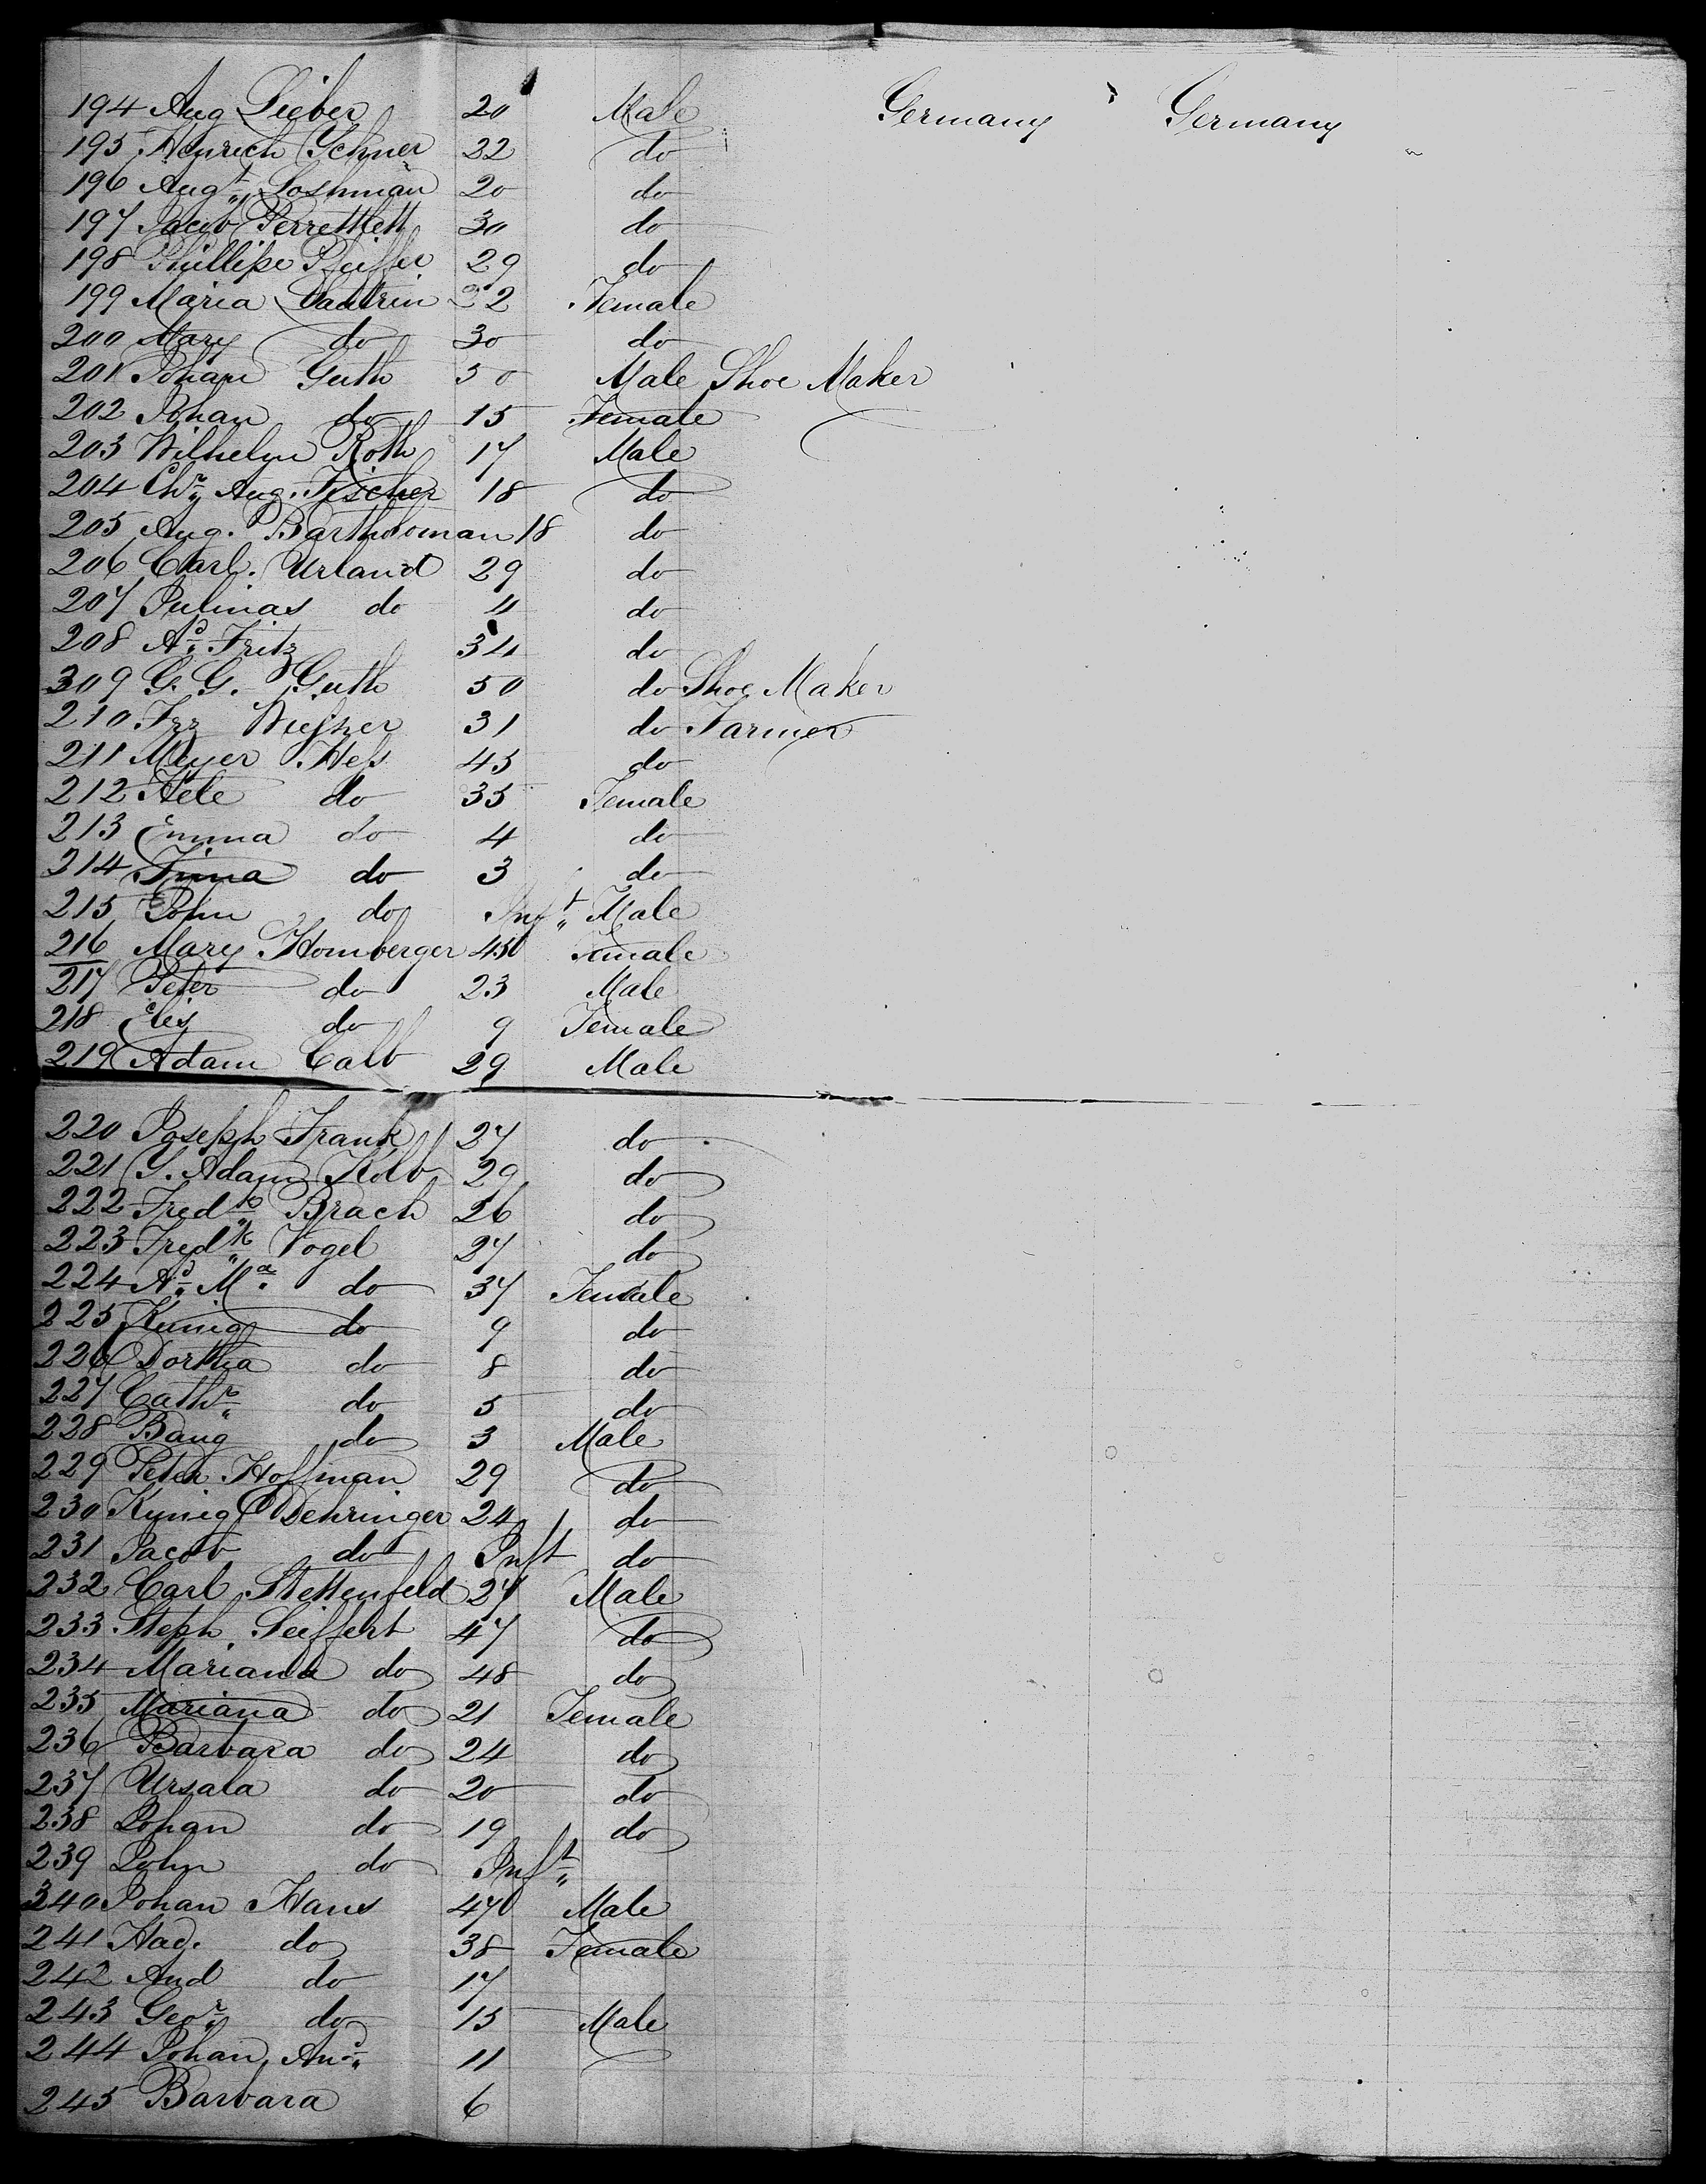 194 Aug Lieber 20 Male Germany Germany
195 Heinrich Schner 22 do
196 Augt Loshman 20 do
197 Jacob Perrettett 30 do
198 Phillipe Peiffer 29 do
199 Maria Dautrin 22 Female
200 Mary do 30 do
201 Johan Guth 30 Male Shoe Maker
202 Johan do 15 Female
203 Wilhelm Roth 17 Male
204 Chr Aug. Fischer 18 do
205 Aug. Bartholoman 18 do
206 Carl. Urland 29 do
207 Julinas do 11 do
208 Ad. Fritz 34 do
309 G. G. Guth 50 do Shoe Maker
210 Frz Wiesner 31 do Farmer
211 Meyer Hess 45 do
212 Hele do 35 Female
213 Emma do 4 do
214 Finna do 3 do
215 John do Inft Male
216 Mary Homberger 450 Female
217 Peter do 23 Male
218 Elis do 9 Female
219 Adam Calb 29 Male
220 Joseph Frank 27 do
221 G. Adam Kolb 29 do
222 Fredk Brach 26 do
223 Fredk Vogel 27 do
224 Ad. Ma. do 37 Female
225 Kunig do 9 do
226 Dorthea do 8 do
227 Cathr do 5 do
228 Baug do 3 Male
229 Peter Hoffman 29 do
230 Kunig Dehringer 24 do
231 Jacob do Inft do
232 Carl Stettenfeld 27 Male
233 Steph Seiffert 47 do
234 Mariana do 48 do
235 Mariana do 21 Female
236 Barbara do 24 do
237 Ursala do 20 do
238 Johan do 19 do
239 John do Inft
340 Johan Hans 470 Male
241 Had. do 38 Female
242 And do 17
243 Geor do 15 Male
244 Johan And 11
245 Barbara 6